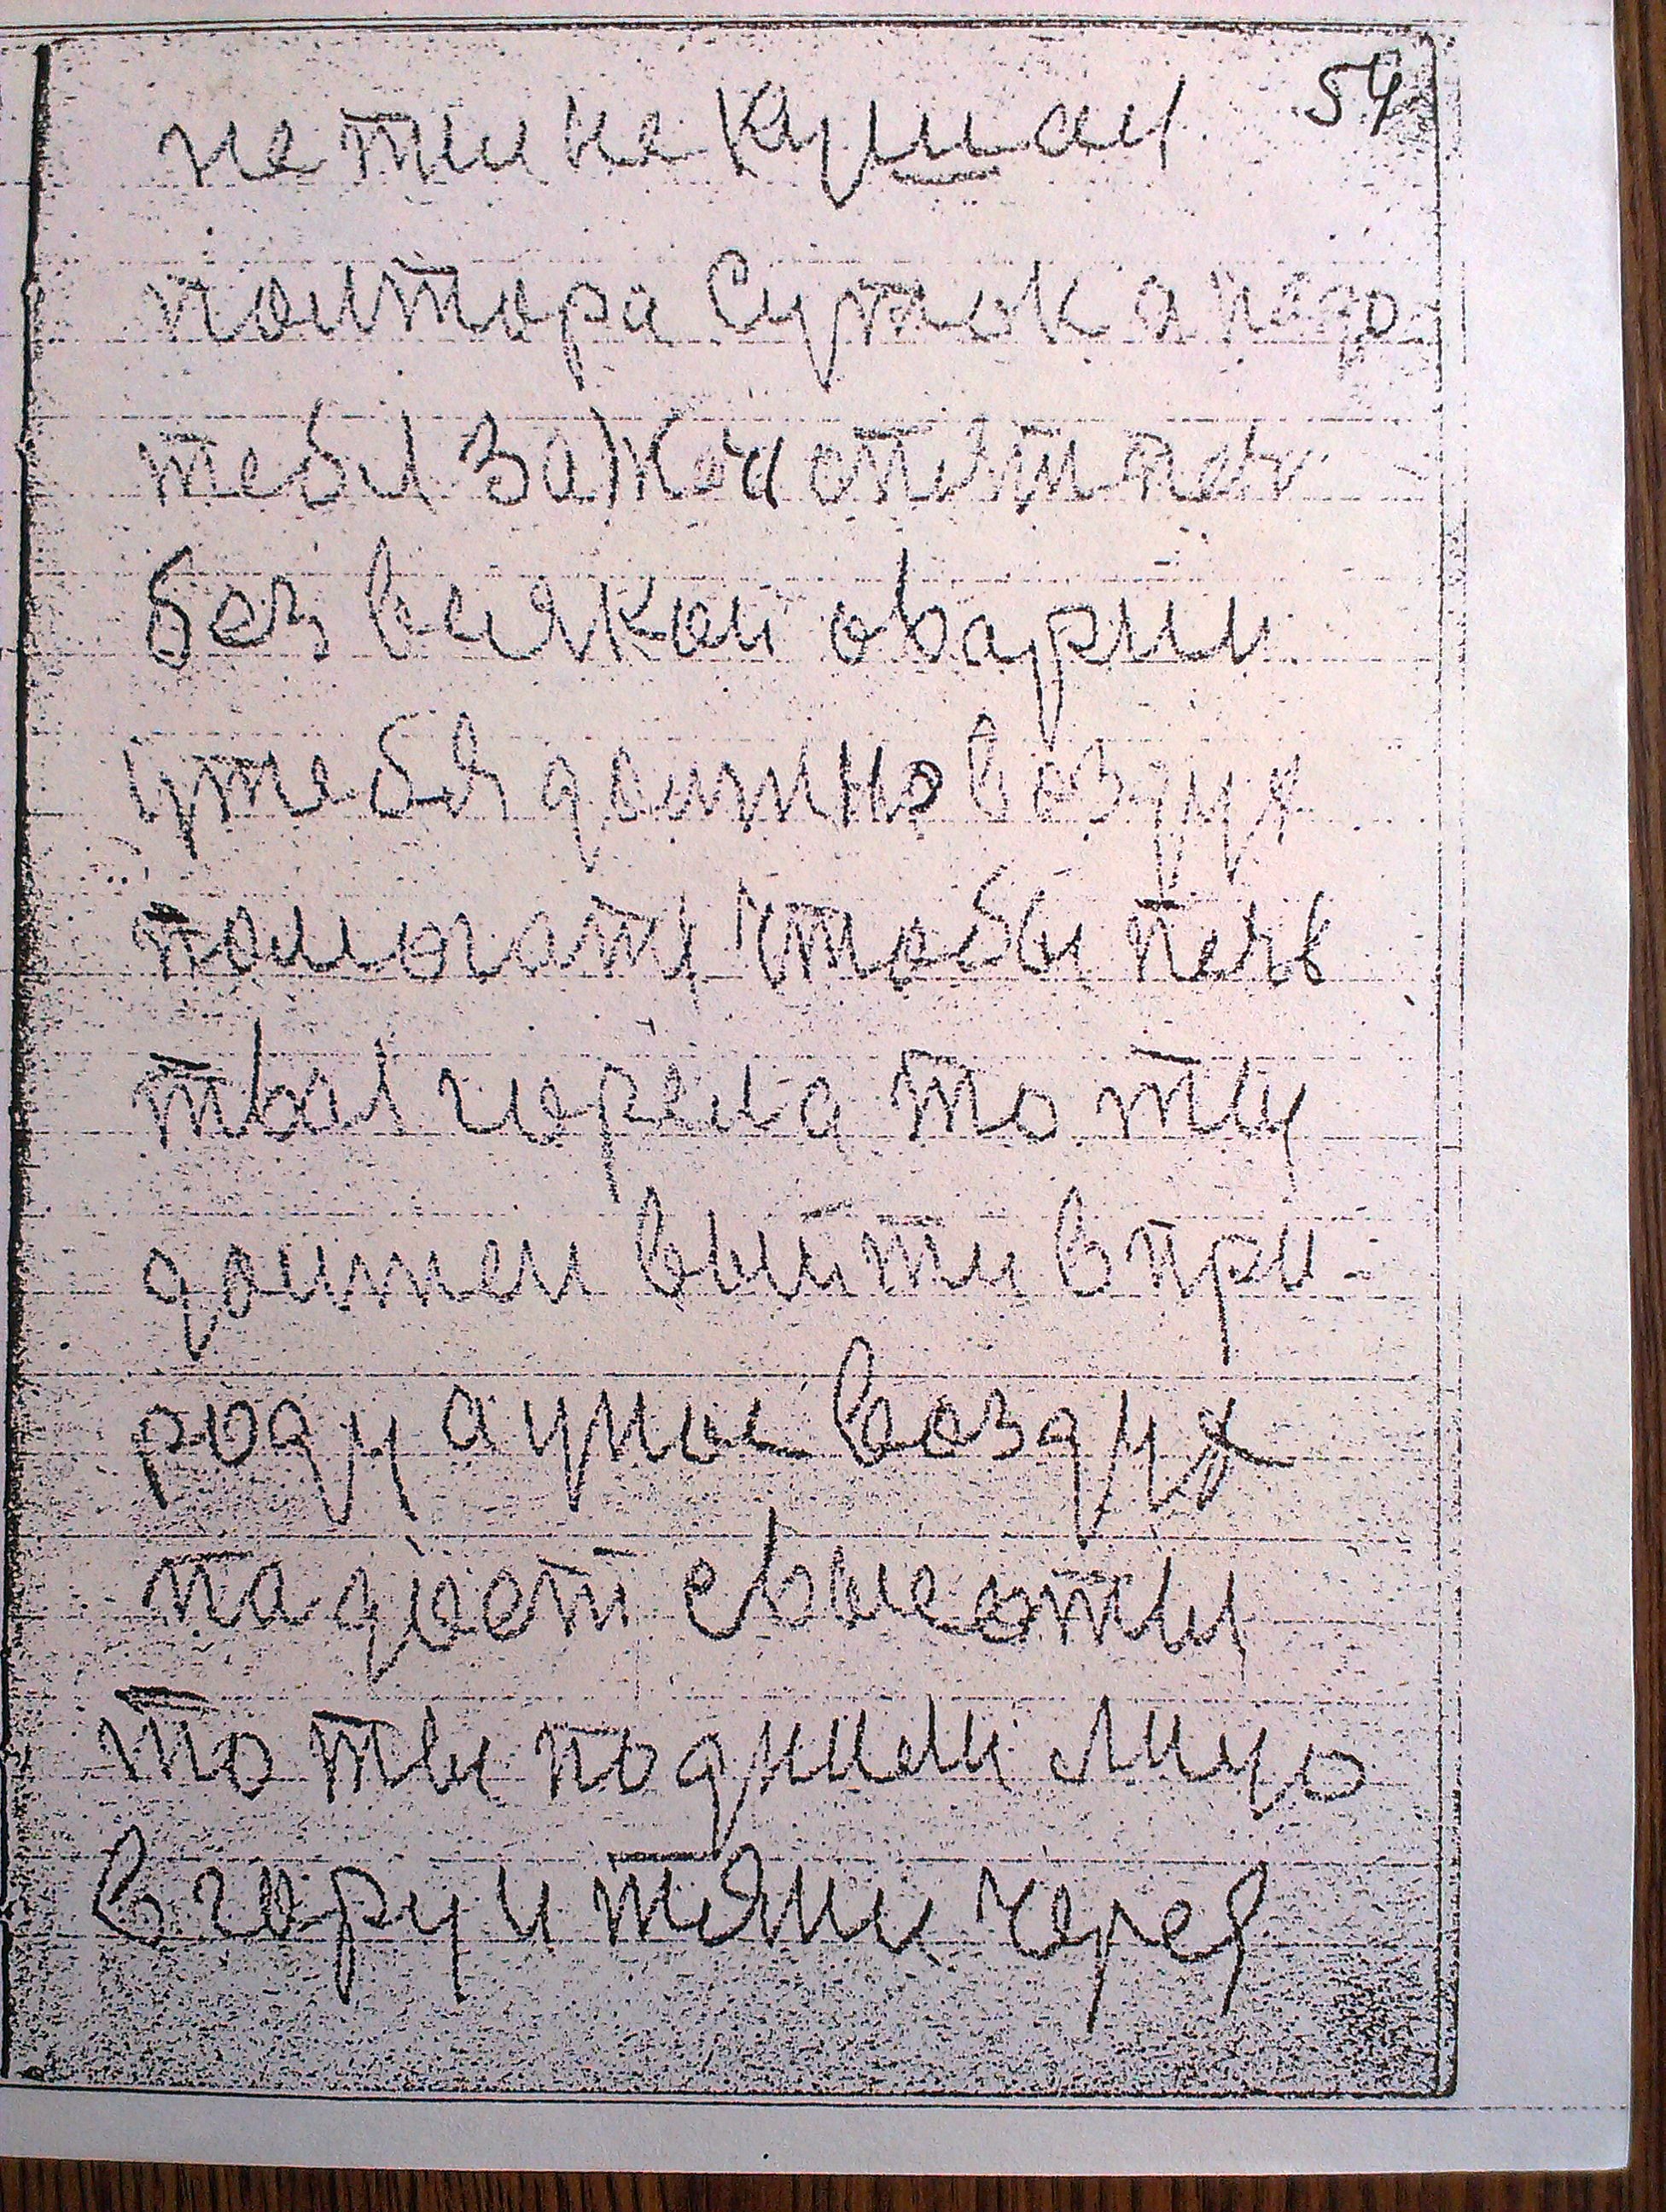 54
не ти не кушал
полтора суток а надо
тебя зажеч опят печ
без всякой оварии
у тебя должно воздух
помогат чтобы печь
твоя горела то ты
должен выйти в при-
роду а воздух
падает с высоты
то ты подними лицо
в гору и тяни через